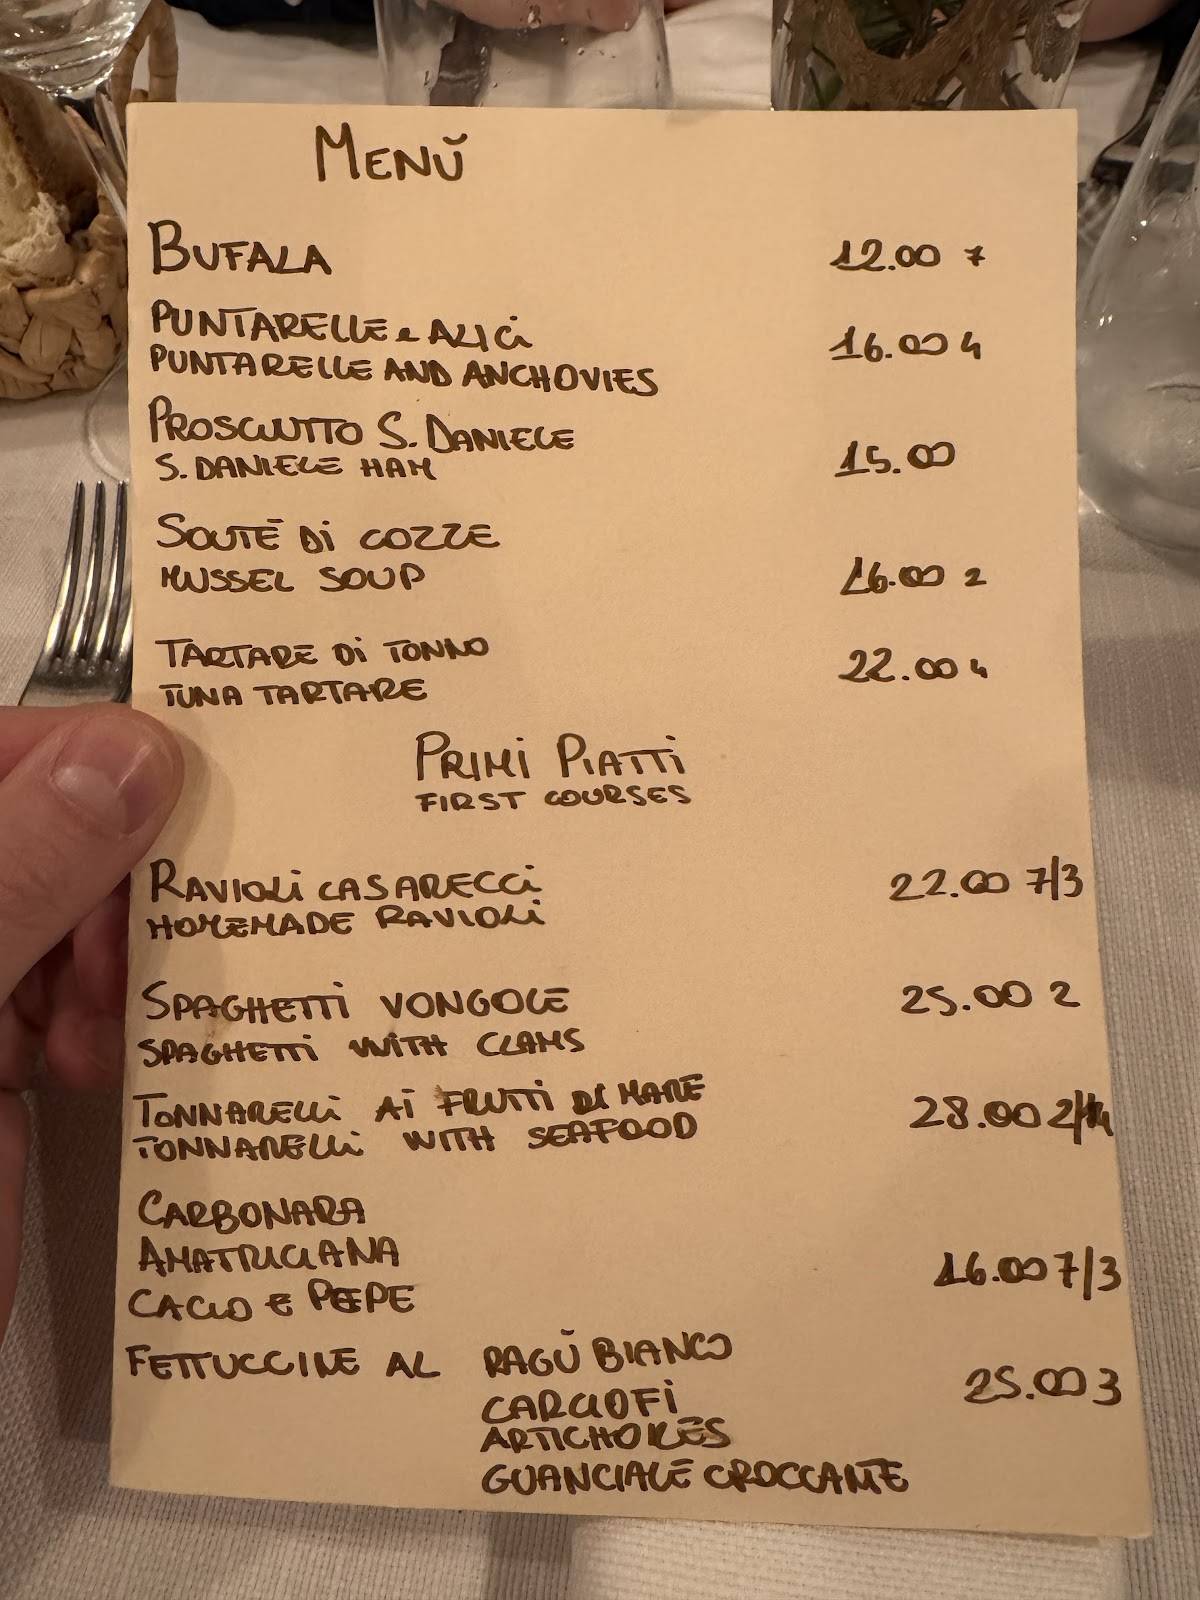 MENŬ
BUFALA 12.00 7
PUNTARELLE e ALICI
PUNTARELLE AND ANCHOVIES 16.00 4
PROSCIUTTO S. DANIELE
S. DANIELE HAM 15.00
SOUTÈ DI COZZE
MUSSEL SOUP 16.00 2
TARTARE DI TONNO 22.00 4
TUNA TARTARE
PRIMI PIATTI
FIRST COURSES
RAVIOLI CASARECCI 22.00 7/3
HOMEMADE RAVIOLI
SPAGHETTI VONGOLE 25.00 2
SPAGHETTI WITH CLAMS
TONNARELLI AI FRUTTI DI MARE 28.00 2/14
TONNARELLI WITH SEAFOOD
CARBONARA
AMATRICIANA 16.00 7/3
CACIO E PEPE
FETTUCCINE AL RAGŬ BIANCO
CARCIOFI 25.00 3
ARTICHOKES
GUANCIALE CROCCANTE